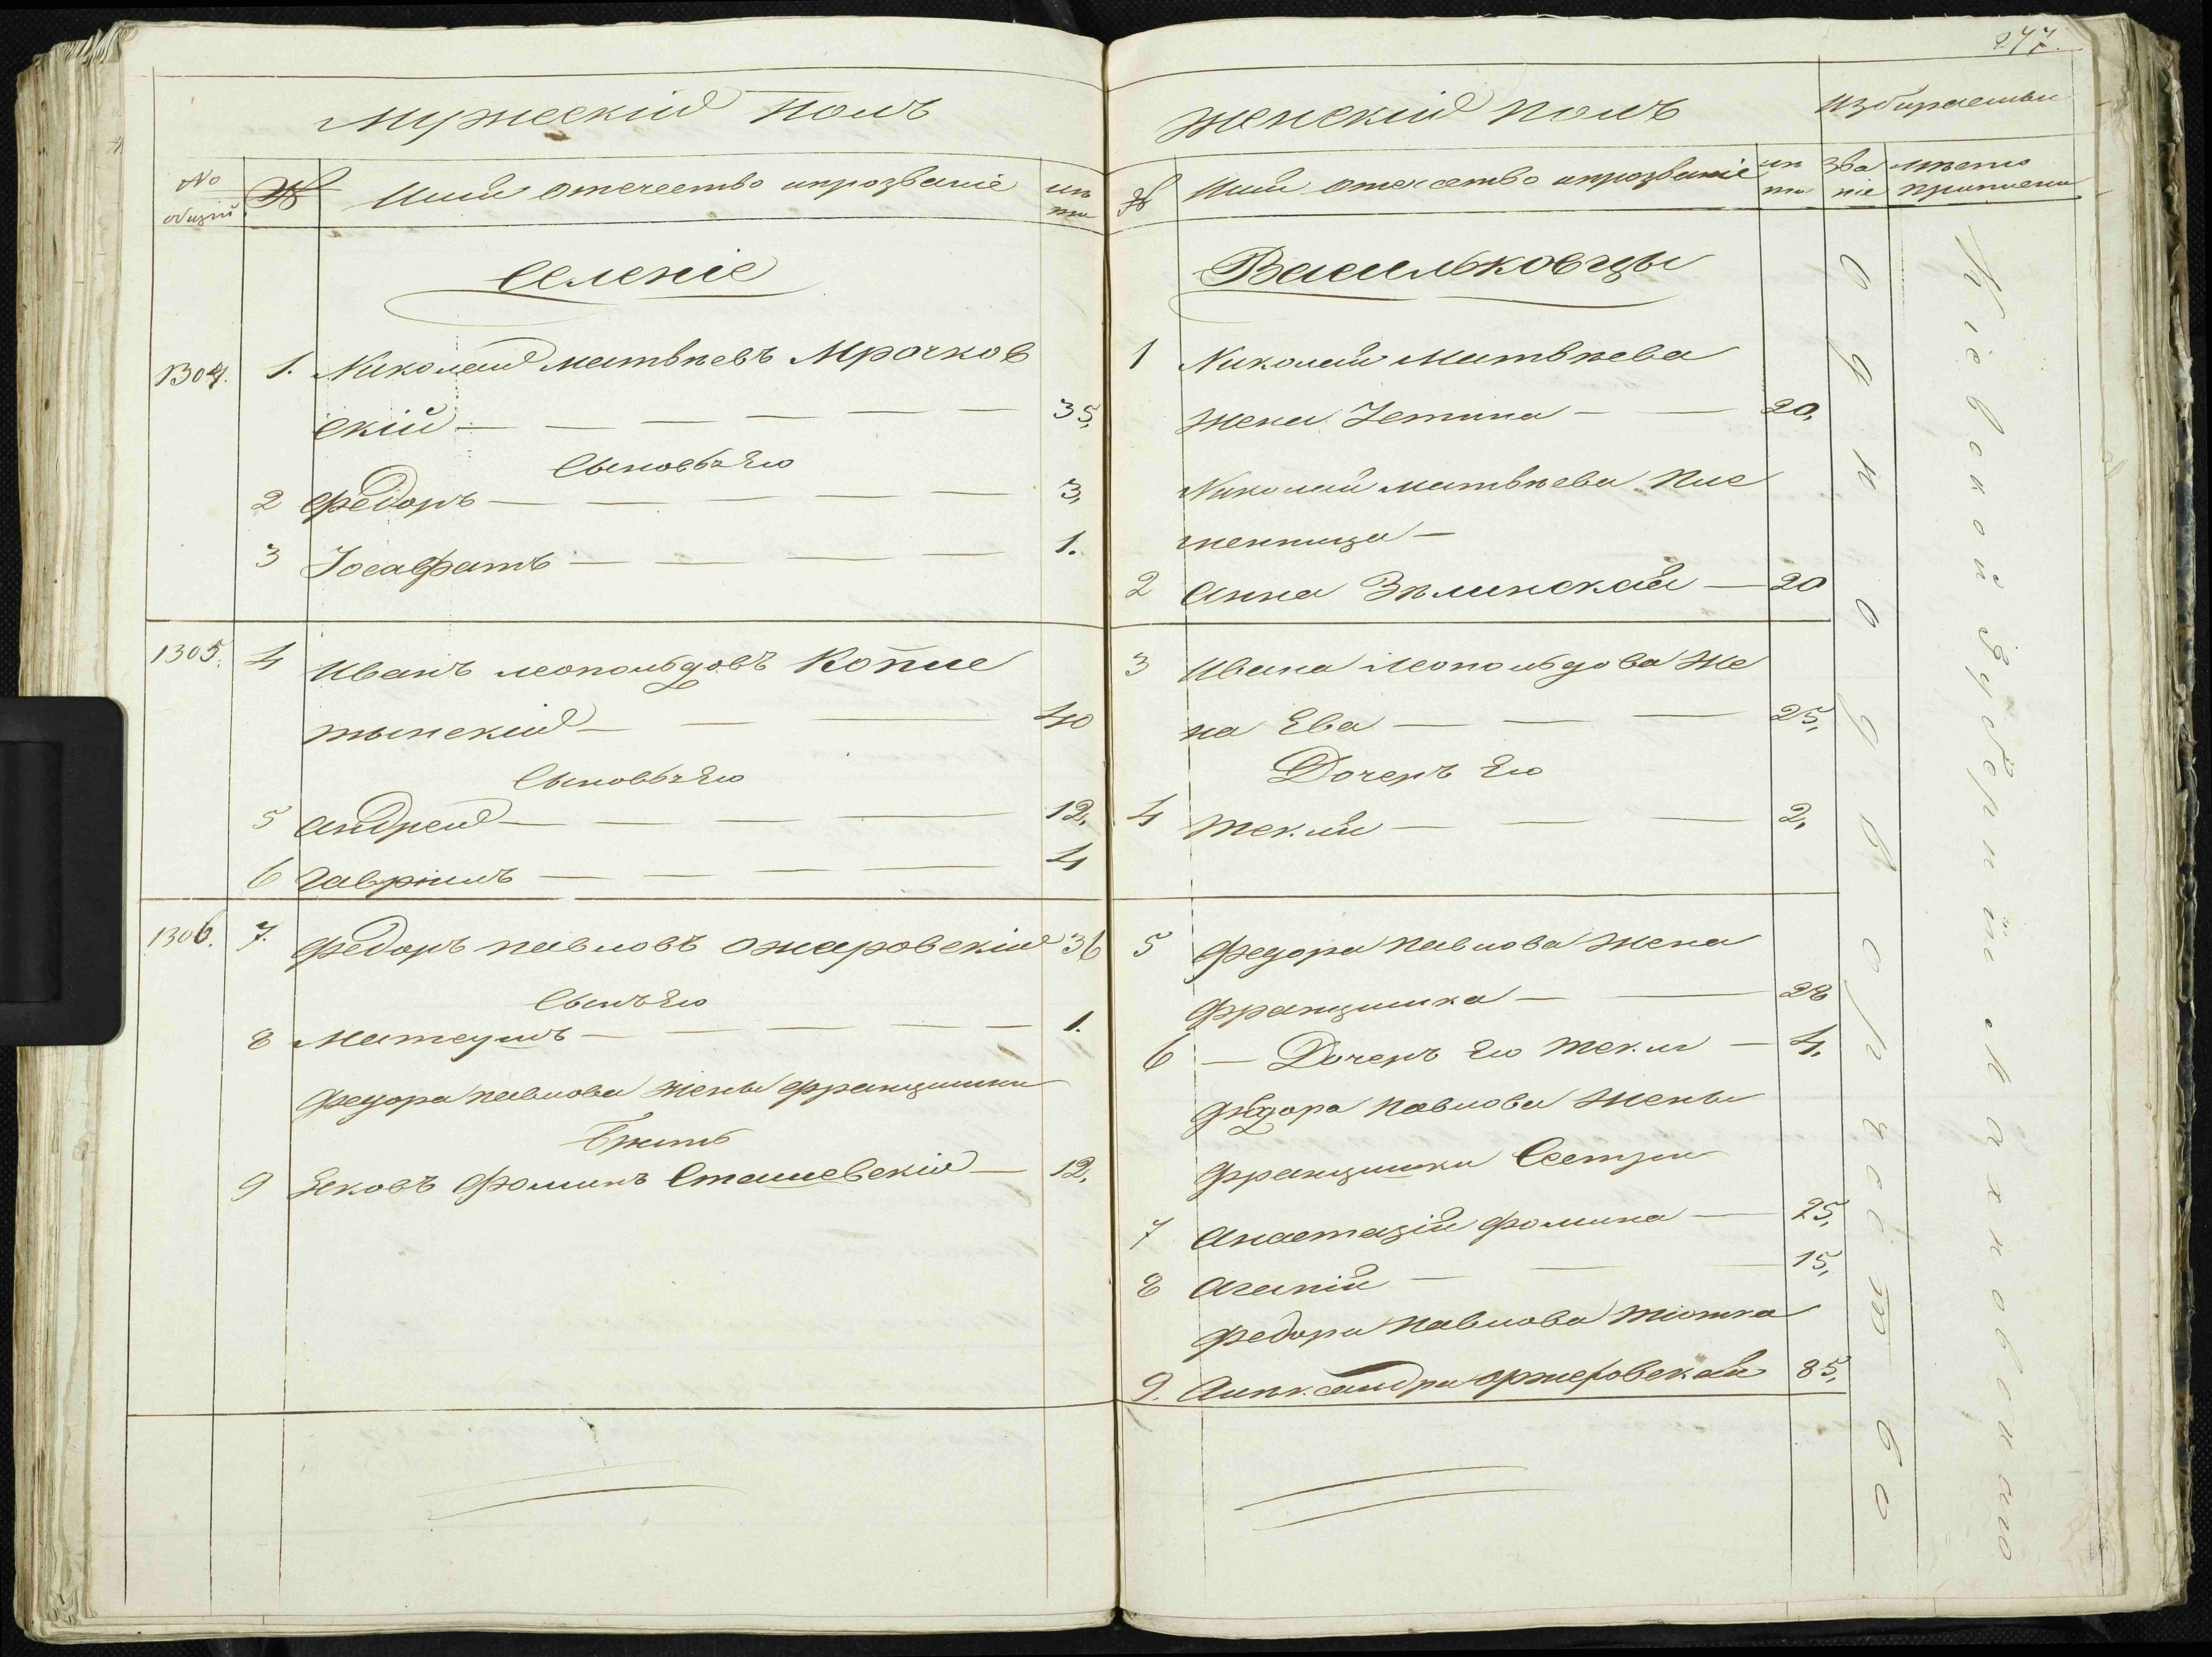 Мужескій полъ
№ общій
№
Имя отечество ипрозваніе
лѣта
Селеніе
1304. 1. Николай матвѣевъ Мрочков
скій — 35,
Сыновья Его
2 Федоръ — 3,
3 Іосафатъ — 1.
1305. 4 Иванъ леопольдовъ Копис
тынскій — 40
Сыновья Его
5 андрей — 12,
6 Гавріилъ — 4
1306. 7. Федоръ павловъ ожаровскій 36
Сынъ Его
8 Матеушъ — 1.
Федора павлова жены францишки
Братъ
9 Яковъ Фоминъ Сташевскій — 12,
277.
Женскій полъ
Избираемыи
№
Имя отечество ипрозваніе
лѣ та
Зва ніе
мѣсто приписки
Васильковцы
1 Николая Матвѣева
жена Устина — 20,
Николая матвѣева Пле
менница —
2 Анна Зѣлинская — 20
3 Ивана Леопольдова Же
на Ева — 25,
Дочерь Его
4 текля — 2,
5 Федора павлова жена
Францишка — 28
6 — Дочерь Его текля — 4,
Федора павлова жены
Францишки Сестры
7 Анастазія Фомина — 25,
8 Агапія — 15,
Федора Павлова тиотка
9. Александра оржеровская 85,
Однодворчество
Кіевской Губерніи Махновскаго